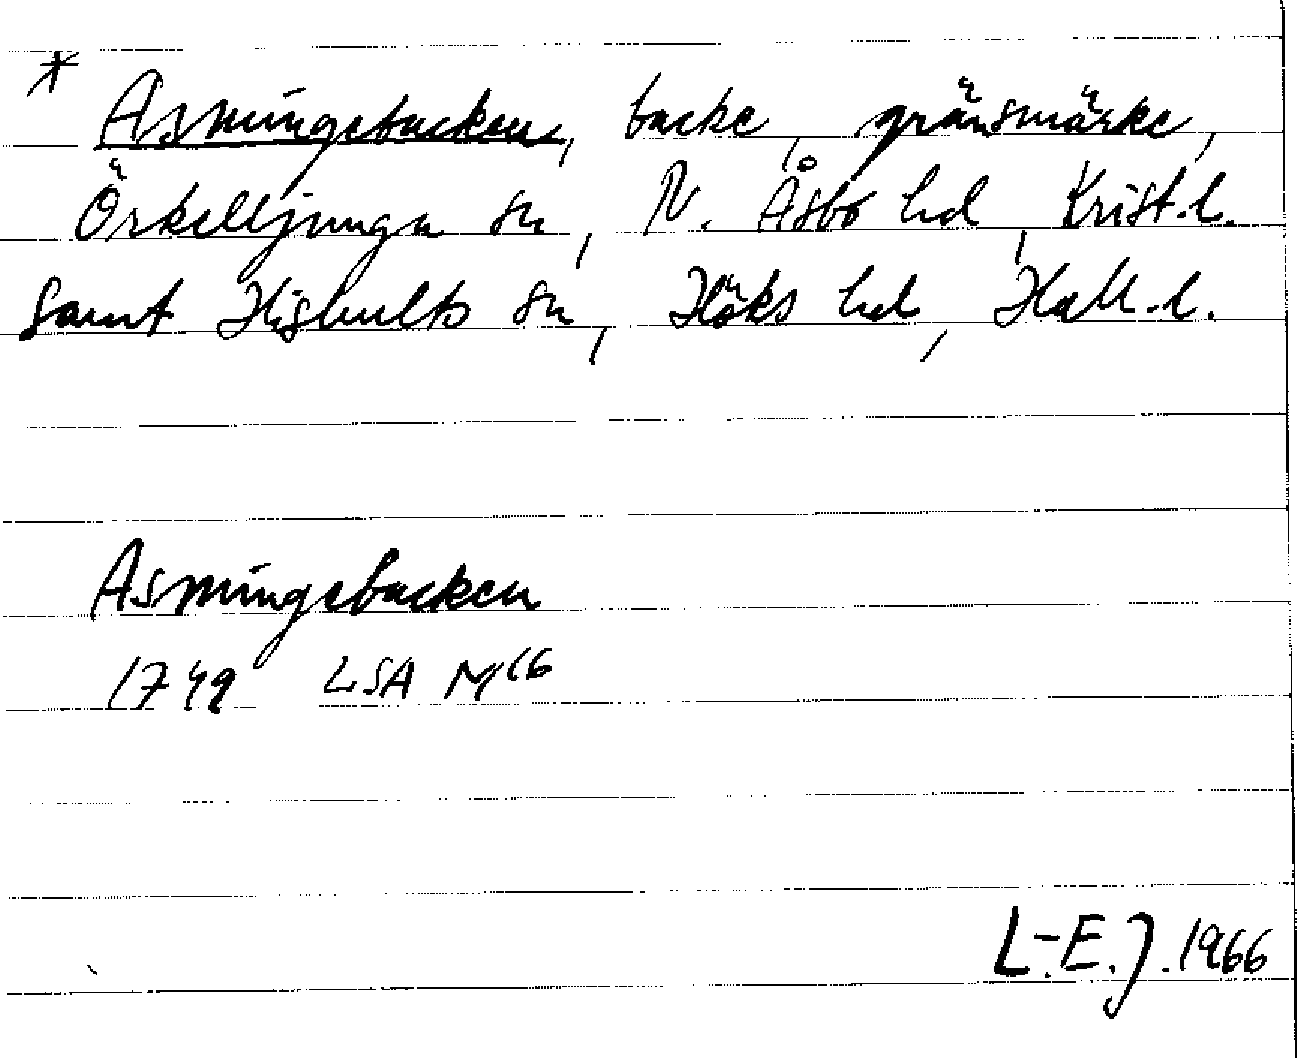 * Asmingebacken, backe, gränsmärke,
Örkelljunga sn, N. Åsbo hd, Krist.l.
samt Hishults sn, Höks hd, Hall.l.
Asmingebacken
1749 LSA M16
L.-E.J. 1966